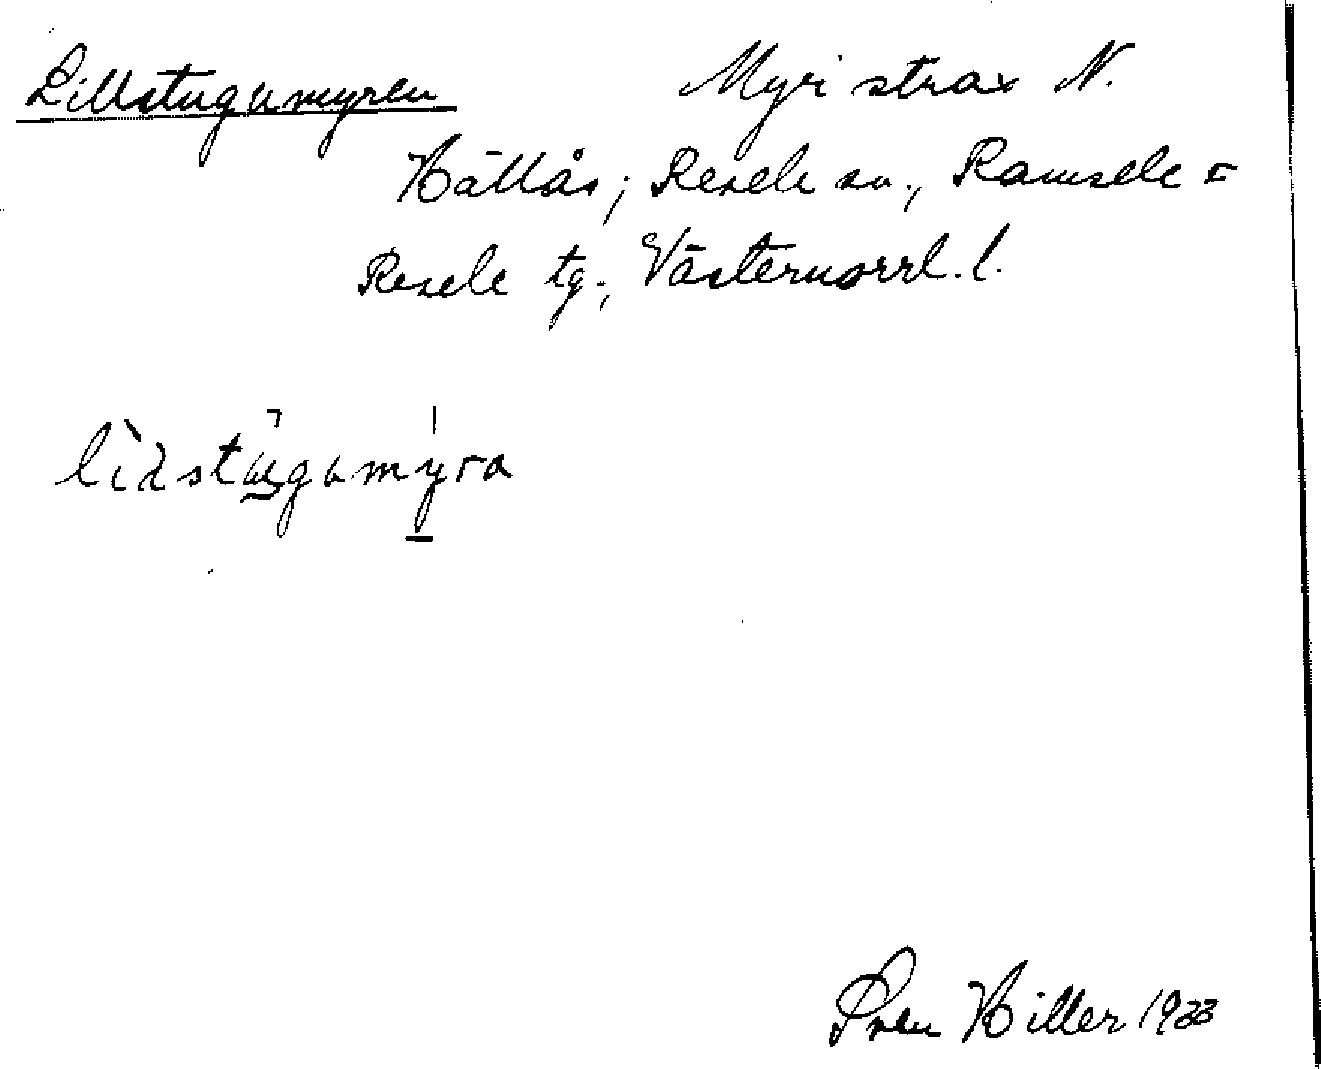 Lillstugumyren Myr strax N.
Hällås; Resele sn., Ramsele o
Resele tg., Västernorrl. l.
Sven Hiller 1933